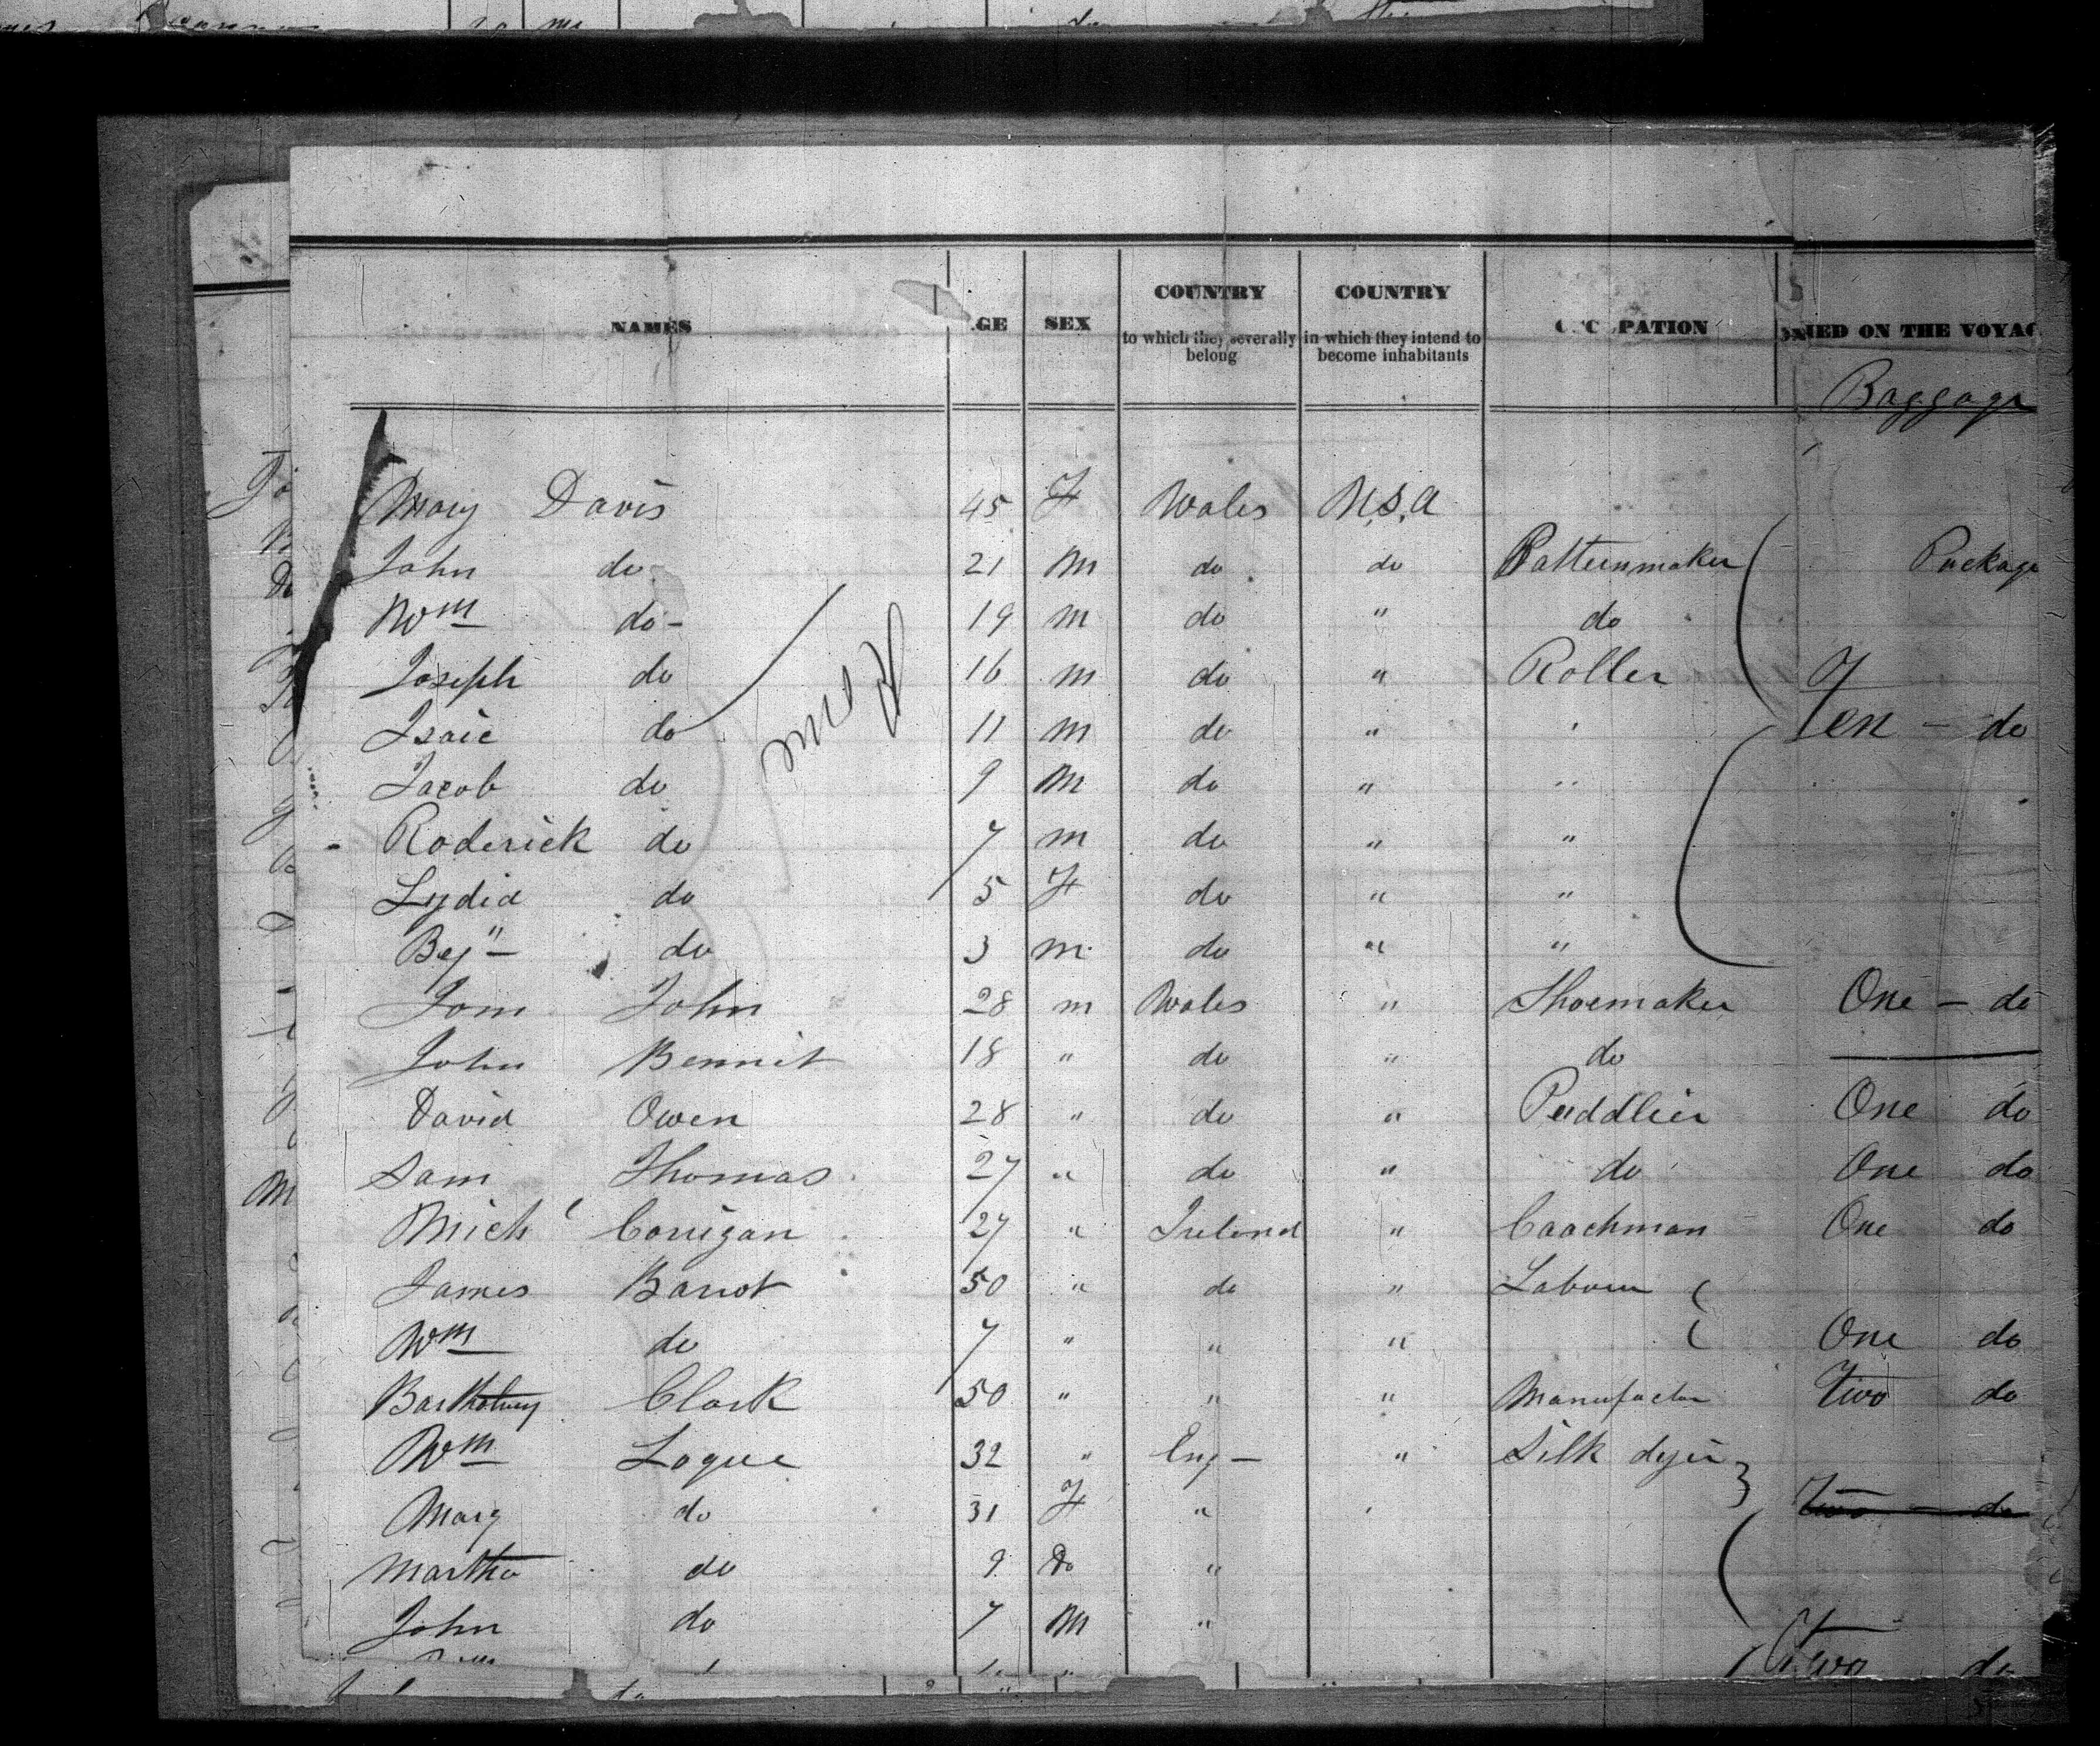 NAMES GE SEX COUNTRY to which they severally belong COUNTRY in which they intend to become inhabitants PATION ON THE VOYAG
Baggage
Mary Davis 45 F Wales U.S.A
John do 21 M do do Patternmaker Package
Wm do 19 m do " do
Joseph do 16 m do " Roller
Isaic do 11 m do " Ten — do
Jacob do 9 M do " "
Roderick do 7 m do " "
Lydia do 5 F do " "
Bej" do 3 m do " "
Tom John 28 m Wales " Shoemaker One — do
John Bennit 18 " do " do —
David Owen 28 " do " Puddlier One do
Sam Thomas 27 " do " do One do
Mich' Corrigan 27 " Ireland " Coachman One do
James 50 " do " Labour
Wm do 7 " " " One do
Clark 50 " " " Manufactur Two do
Wm Logue 32 " Eng — " Silk dyer
Mary do 31 F " Two — do
Martha do 9 Do "
John do 7 M "
Two do